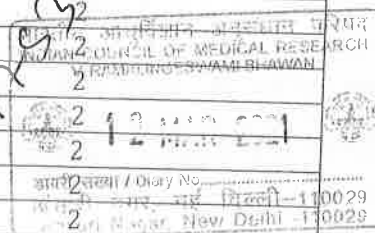 2
भारतीय आयुर्विज्ञान अनुसंधान परिषद
2
INDIAN COUNCIL OF MEDICAL RESEARCH
V. RAMALINGASWAMI BHAWAN
2
2
2
12 MAR 2021
2
डायरी संख्या / Diary No.
2
नगर, नई दिल्ली-110029
Nagar, New Delhi-110029
2